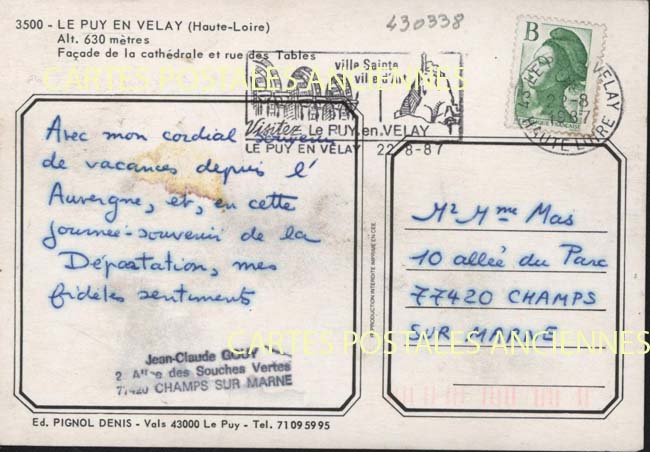 3500 - LE PUY EN VELAY (Haute-Loire)
Alt. 630 mètres
Façade de la cathédrale et rue des Tables
430338
ville Sainte
Visitez Le PUY.en.VELAY
LE PUY EN VELAY 22-8-87
B
VELAY
22-8
1987
HAUTE LOIRE
CARTES POSTALES ANCIENNES
Avec mon cordial souvenir
de vacances depuis l'
Auvergne, et, en cette
journée-souvenir de la
Déportation, mes
fidèles sentiments
Jean-Claude
2 Allée des Souches Vertes
77420 CHAMPS SUR MARNE
PRODUCTION INTERDITE IMPRIMÉ EN CEE
Mr Mme Mas
10 allée du Parc
77420 CHAMPS
SUR MARNE
CARTES POSTALES ANCIENNES
Ed. PIGNOL DENIS - Vals 43000 Le Puy - Tel. 71 09 59 95